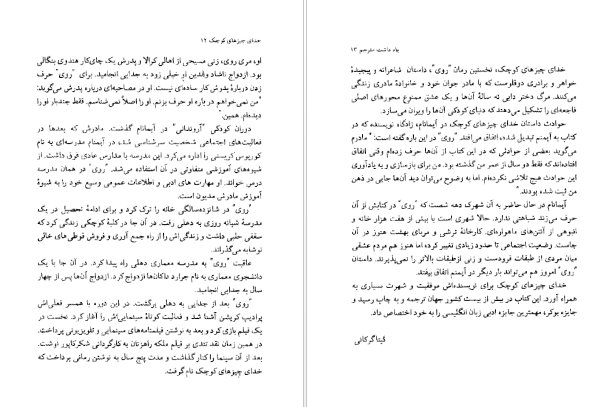 خدای چیزهای کوچک ۱۲
او، مری روی، زنی مسیحی از اهالی کرالا و پدرش یک چای‌کار هندوی بنگالی
بود. ازدواج ناشاد والدین او خیلی زود به جدایی انجامید. برای "روی" حرف
زدن دربارهٔ پدرش کار ساده‌ای نیست. او در مصاحبه‌ای درباره پدرش می‌گوید:
"من نمی‌خواهم در باره او حرف بزنم. او را اصلاً نمی‌شناسم. فقط چندبار او را
دیده‌ام. همین."
دوران کودکی "آرونداتی" در آیمانام گذشت. مادرش که بعدها در
فعالیت‌های اجتماعی شخصیت سرشناسی شده در آیمنام مدرسه‌ای به نام
کورپوس کریستی را اداره می‌کرد. این مدرسه با مدارس عادی فرق داشت. از
شیوه‌های آموزشی متفاوتی در آن استفاده می‌شد. "روی" در همان مدرسه
درس خواند. او مهارت های ادبی و اطلاعات عمومی وسیع خود را به شیوهٔ
آموزش مادرش مدیون است.
"روی" در شانزده‌سالگی خانه را ترک کرد و برای ادامهٔ تحصیل در یک
مدرسهٔ شبانه روزی به دهلی رفت. در آن جا در کلبهٔ کوچکی زندگی کرد که
سقفی حلبی داشت و زندگی‌اش را از راه جمع آوری و فروش قوطی های خالی
نوشابه می‌گذراند.
عاقبت "روی" به مدرسه معماری دهلی راه پیدا کرد. در آن جا با یک
دانشجوی معماری به نام جرارد داکانها ازدواج کرد. ازدواج آن‌ها پس از چهار
سال به جدایی انجامید.
"روی" بعد از جدایی به دهلی برگشت. در این دوره با همسر فعلی‌اش
پرادیپ کریشن آشنا شد و فعالیت کوتاه سینمایی‌اش را آغاز کرد. نخست در
یک فیلم بازی کرد و بعد به نوشتن فیلمنامه‌های سینمایی و تلویزیونی پرداخت.
در همین زمان نقد تندی بر فیلم ملکه راهزنان به کارگردانی شکرکاپور نوشت.
بعد از آن سینما را کنار گذاشت و مدت پنج سال به نوشتن رمانی پرداخت که
خدای چیزهای کوچک نام گرفت.
یاد داشت مترجم ۱۳
خدای چیزهای کوچک، نخستین رمان "روی"، داستان شاعرانه و پیچیدهٔ
خواهر و برادری دوقلوست که با مادر جوان خود و خانوادهٔ مادری زندگی
می‌کنند. مرگ دختر دایی نه سالهٔ آن‌ها و یک عشق ممنوع محورهای اصلی
فاجعه‌ای را تشکیل می‌دهند که دنیای کودکی آن‌ها را ویران می‌سازد.
حوادث داستان خدای چیزهای کوچک در آیمانام، زادگاه نویسنده که در
کتاب به آیمنم تبدیل شده اتفاق می‌افتد. "روی" در این باره گفته است: "مادرم
می‌گوید بعضی از حوادثی که در کتاب از آن‌ها حرف زده‌ام وقتی اتفاق
افتاده‌اند که فقط دو سال از عمر من گذشته بود. من برای بازسازی و به یادآوری
این حوادث هیچ تلاشی نکرده‌ام. اما به وضوح می‌توان دید آن‌ها جایی در ذهن
من ثبت شده بودند."
آیمانام در حال حاضر به آن شهرک دهه شصت که "روی" در کتابش از آن
حرف می‌زند شباهتی ندارد. حالا شهری است با بیش از هفت هزار خانه و
انبوهی از آنتن‌های ماهواره‌ای. کارخانهٔ ترشی و مربای بهشت هنوز در آن
جاست. وضعیت اجتماعی تا حدود زیادی تغییر کرده اما هنوز هم مردم عشقی
میان مردی از طبقات فرودست و زنی ازطبقات بالاتر را نمی‌پذیرند. داستان
"روی" امروز هم می‌تواند بار دیگر در آیمنم اتفاق بیفتد.
خدای چیزهای کوچک برای نویسنده‌اش موفقیت و شهرت بسیاری به
همراه آورد. این کتاب در بیش از بیست کشور جهان ترجمه و به چاپ رسید و
جایزه بوکر، مهمترین جایزه ادبی زبان انگلیسی را به خود اختصاص داد.
گیتا گرکانی